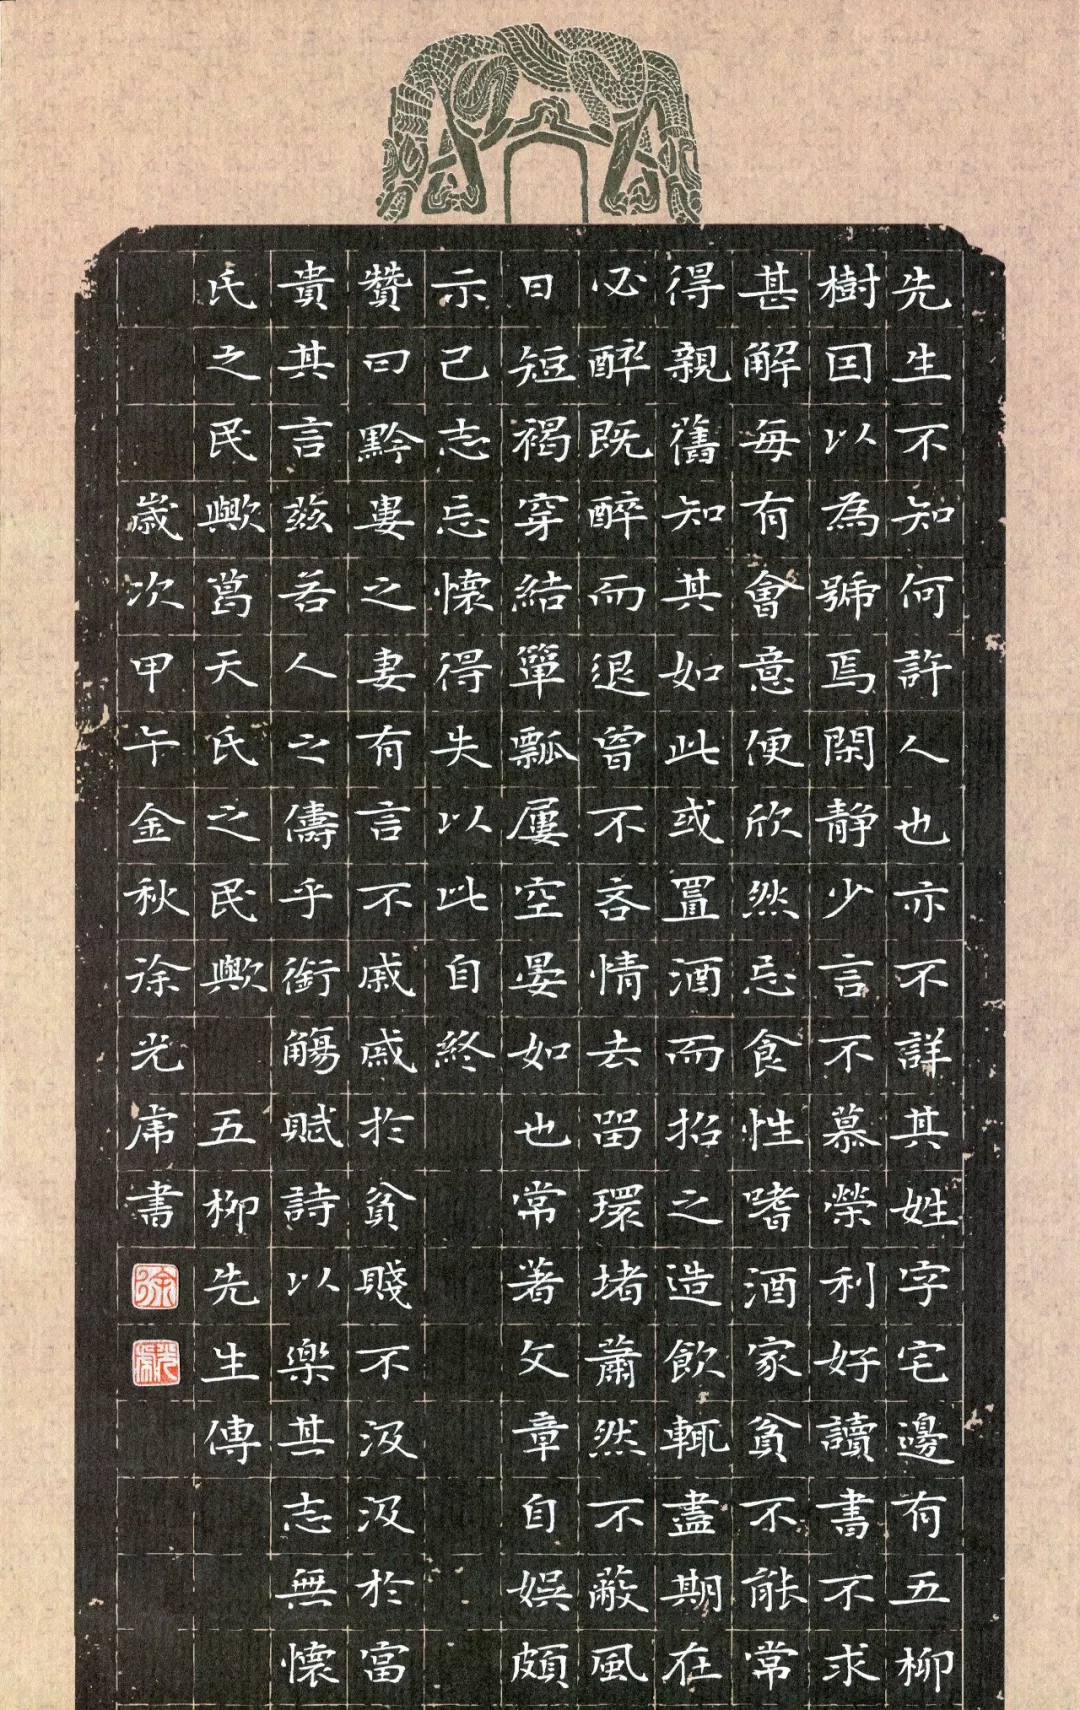 先生不知何許人也亦不詳其姓字宅邊有五柳
樹囙以為號焉閑靜少言不慕榮利好讀書不求
甚解每有會意便欣然忘食性嗜酒家貧不能常
得親舊知其如此或置酒而招之造飲輒盡期在
必醉既醉而退曾不吝情去留環堵蕭然不蔽風
日短褐穿結簞瓢屢空晏如也常著文章自娛頗
示己志忘懷得失以此自終
贊曰黔婁之妻有言不戚戚於貧賤不汲汲於富
貴其言茲若人之儔乎銜觴賦詩以樂其志無懷
氏之民歟葛天氏之民歟 五柳先生傳
歲次甲午金秋徐光虎書
徐
光虎